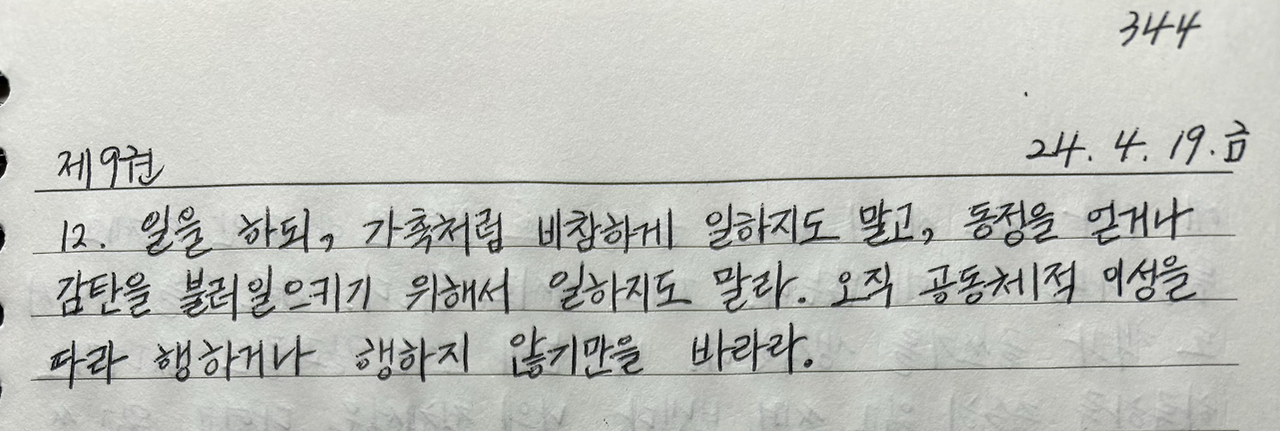 344
제9권 24. 4. 19. 금
12. 일을 하되, 가축처럼 비참하게 일하지도 말고, 동정을 얻거나
감탄을 불러일으키기 위해서 일하지도 말라. 오직 공동체적 이성을
따라 행하거나 행하지 않기만을 바라라.